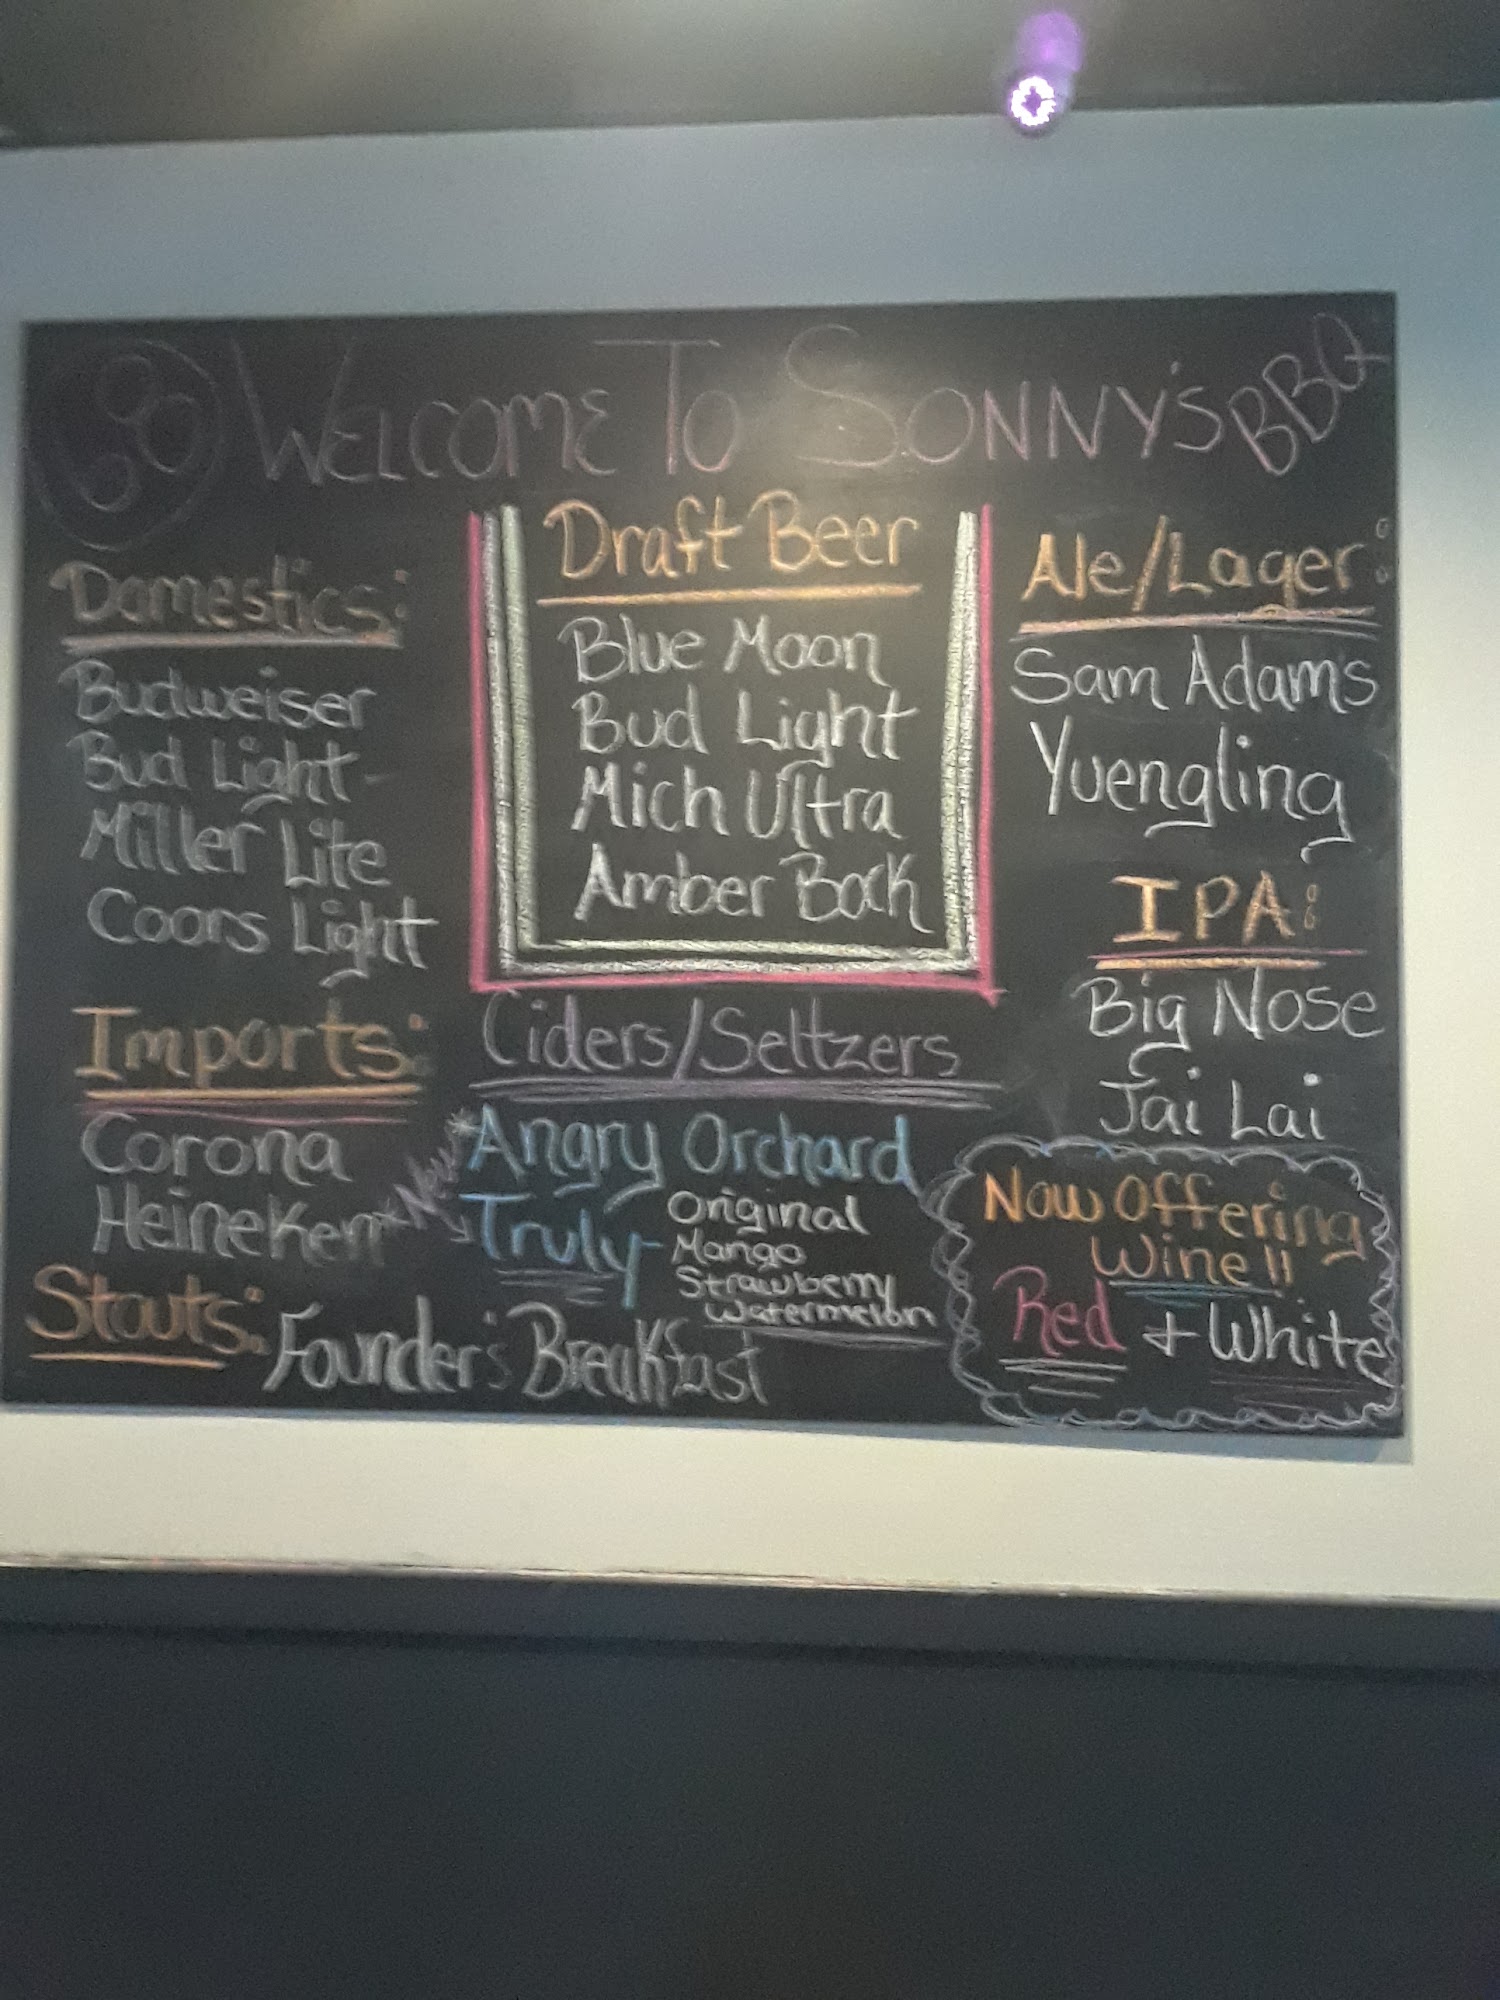 WELCOME TO SONNY'S BBQ
Domestics:
Budweiser
Bud Light
Miller Lite
Coors Light
Imports:
Corona
Heineken
Stouts: Founder's Breakfast
Draft Beer
Blue Moon
Bud Light
Mich Ultra
Amber Bock
Ciders/Seltzers
Angry Orchard
*New*
Truly- Original
Mango
Strawberry
Watermelon
Ale/Lager:
Sam Adams
Yuengling
IPA:
Big Nose
Jai Lai
Now Offering
Wine!!
Red + White